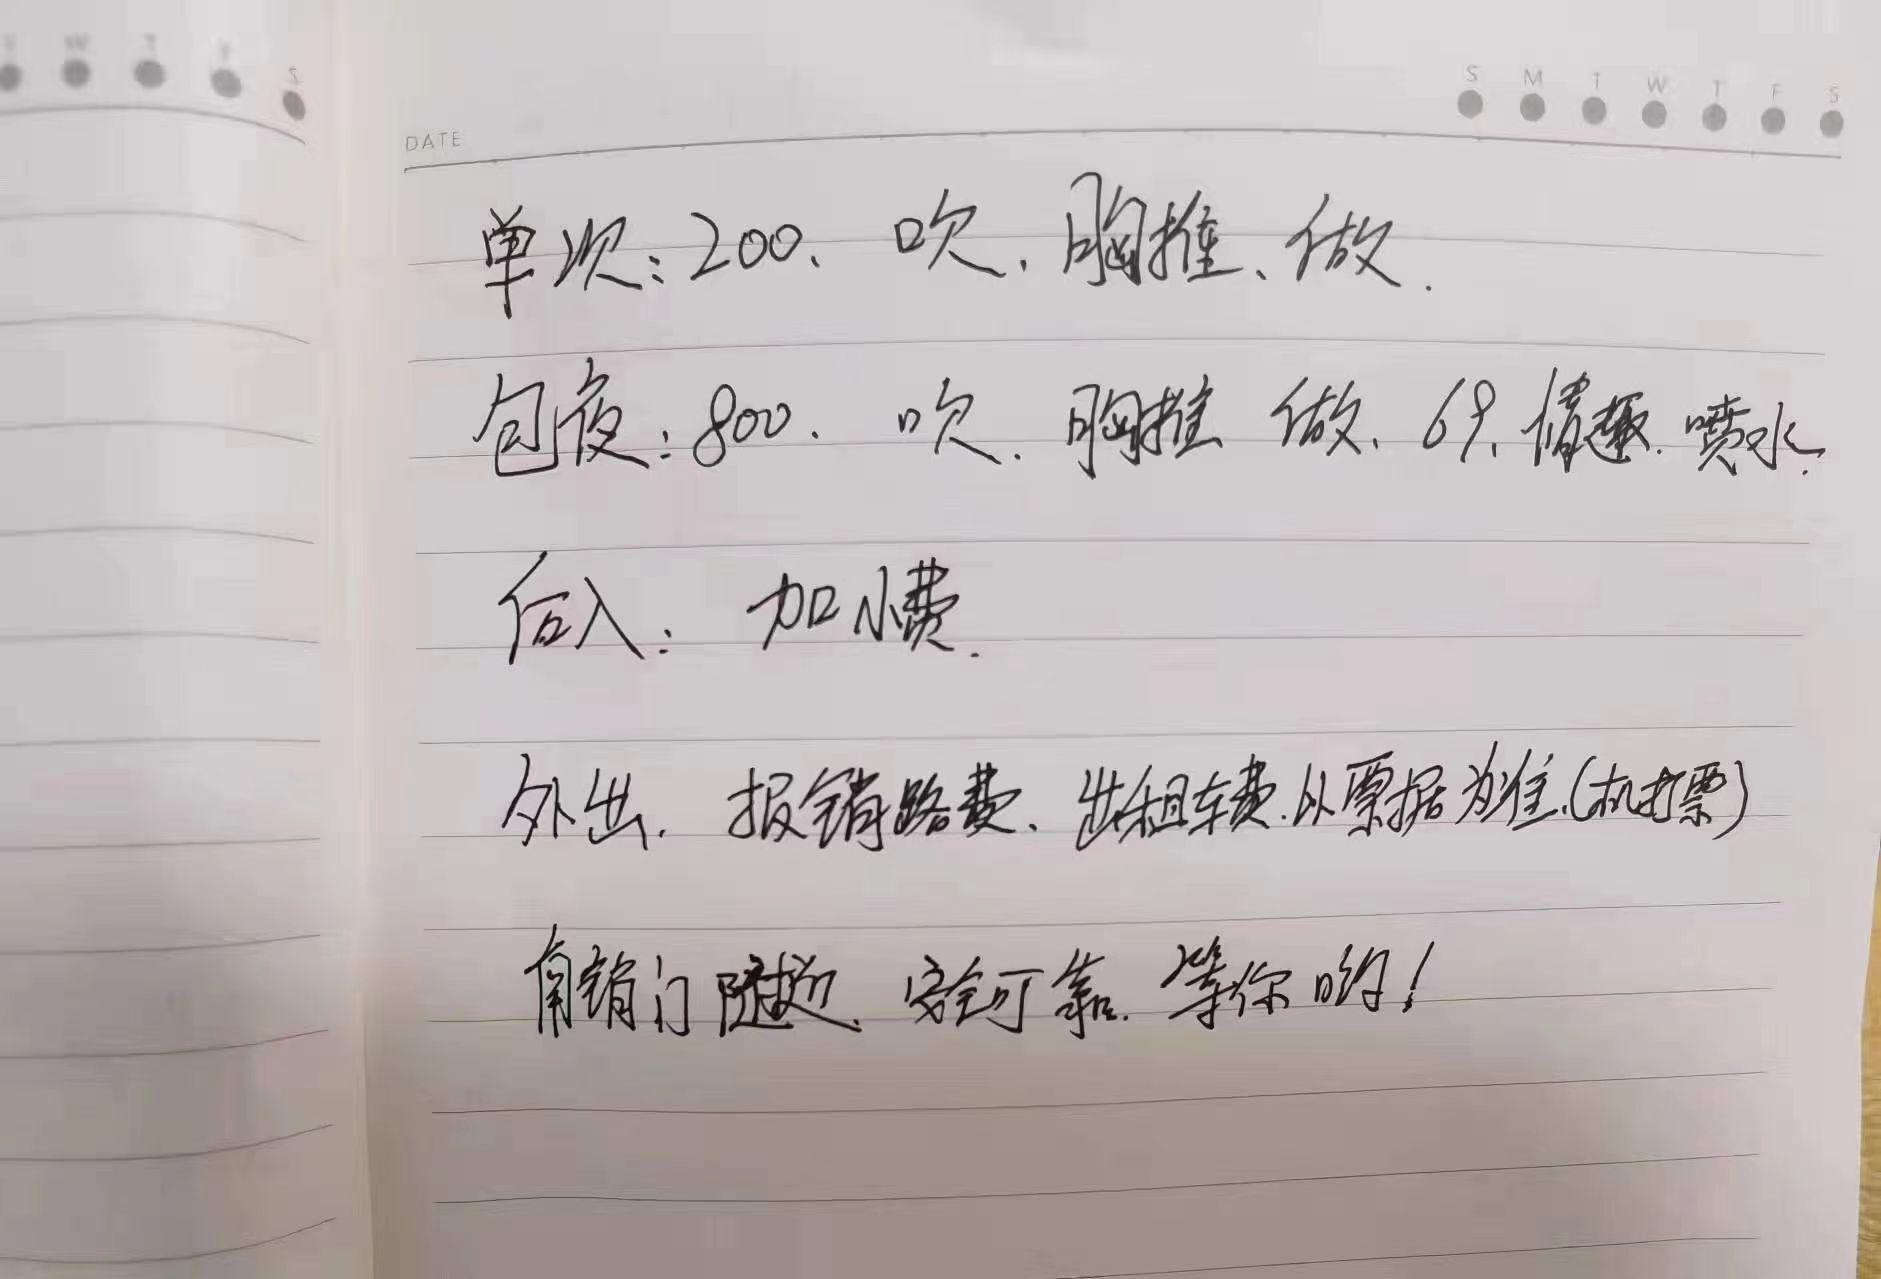 S M T W T F S
W T F S
DATE
单次：200、吹、胸推、做.
包夜：800. 吹. 胸推 做、69、情趣、喷水.
后入：加小费.
外出、报销路费、出租车费.以票据为准.(机打票)
销门 安全可靠. 等你哟！